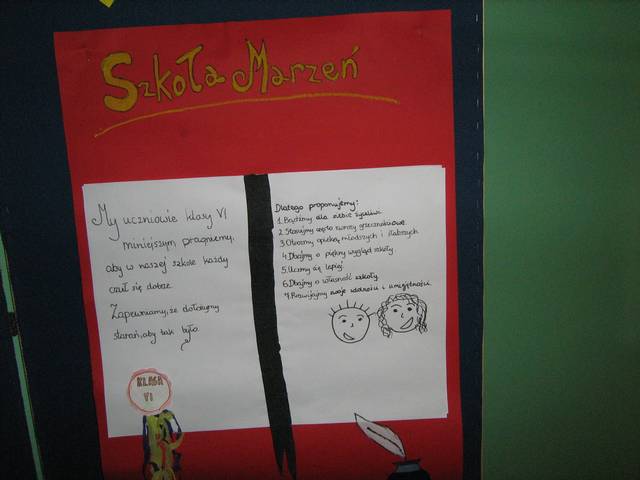 Szkoła Marzeń
My uczniowie klasy VI
niniejszym pragniemy,
aby w naszej szkole każdy
czuł się dobrze.
Zapewniamy, że dołożymy
starań, aby tak było.
KLASA
VI
Dlatego proponujemy:
1. Bądźmy dla siebie życzliwi.
2. Stosujmy często zwroty grzecznościowe.
3. Otoczmy opieką młodszych i słabszych.
4. Dbajmy o piękny wygląd szkoły.
5. Uczmy się lepiej.
6. Dbajmy o własność szkoły.
7. Rozwijajmy swoje zdolności i umiejętności.